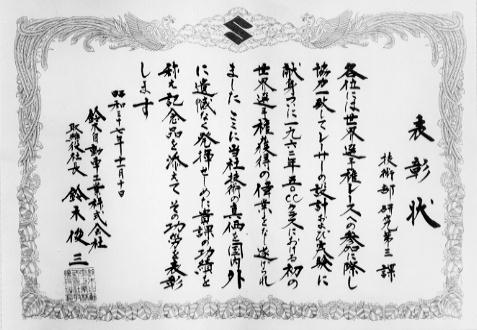 表彰状
技術部研究第三課
各位には世界選手権レースの参加に際し
協力一致してレーサーの設計および実験に
献身つひに一九六二年五〇ccクラスにおける初の
世界選手権獲得の偉業をなし遂げられ
ました ここに当社技術の真価を国内外
に遺憾なく発揮せしめた貴課の功績を
称え記念品を添えて その功労を表彰
します
昭和三十七年十一月十日
鈴木自動車工業株式会社
取締役社長 鈴木俊三